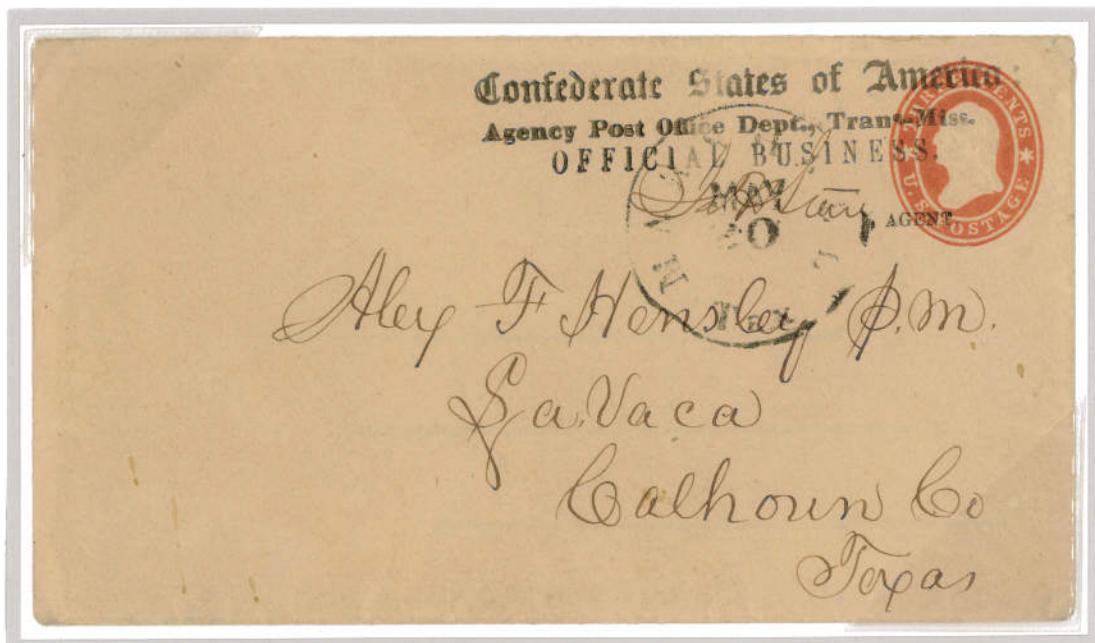 Confederate States of America:
Agency Post Office Dept., Trans-Miss.
OFFICIAL BUSINESS.
AGENT
THREE CENTS
U.S. POSTAGE
MAY
TEX
Alex F Hensley P.M.
La Vaca
Calhoun Co
Texas